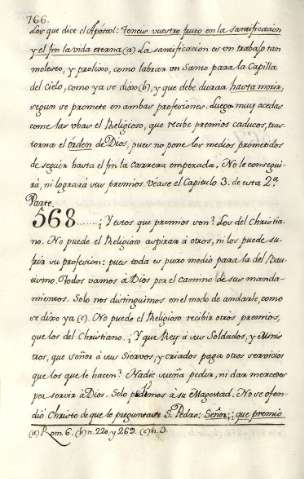 766.
Los que dice el Apostol: Teneis vuestro fruto en la santificacion
y el fin la vida eterna (a) La santificacion es un trabajo tan
molesto, y prolixo, como labrar un Santo para la Capilla
del Cielo, como ya se dixo (b), y que debe durar hasta morir,
segun se promete en ambas profesiones. Luego muy acedas
come las obras el Religioso, que recibe premios caducos, tras-
torna el orden de Dios, pues no pone los medios prometidos
de seguir hasta el fin la Carrera empezada. No le consegui-
rá, ni logrará sus premios Vease el Capitulo 3. de esta 2ª
Parte.
568......¿Y estos que premios son? Los del Christia-
no. No puede el Religioso aspirar á otros, ni los puede su-
frir su profesion: pues toda es puro modio para la del Bau-
tismo. Todos vamos á Dios por el camino de sus manda-
mientos. Solo nos distinguimos en el modo de andarle, como
se dixo ya (c). No puede el Religioso recibir otros premios,
que los del Christiano. ¿Y que Rey á sus Soldados, y Minis-
tros, que señor á sus Siervos, y criados paga otros servicios
que los que le hacen? Nadie sueña pedir, ni dar mercedes
por servir á Dios. Solo pedimos á su Magestad. No se ofen-
dió Christo de que le preguntase S. Pedro: Señor: que premio
(a) Rom. 6. (b) n. 220. y 262. (c) n. 3.